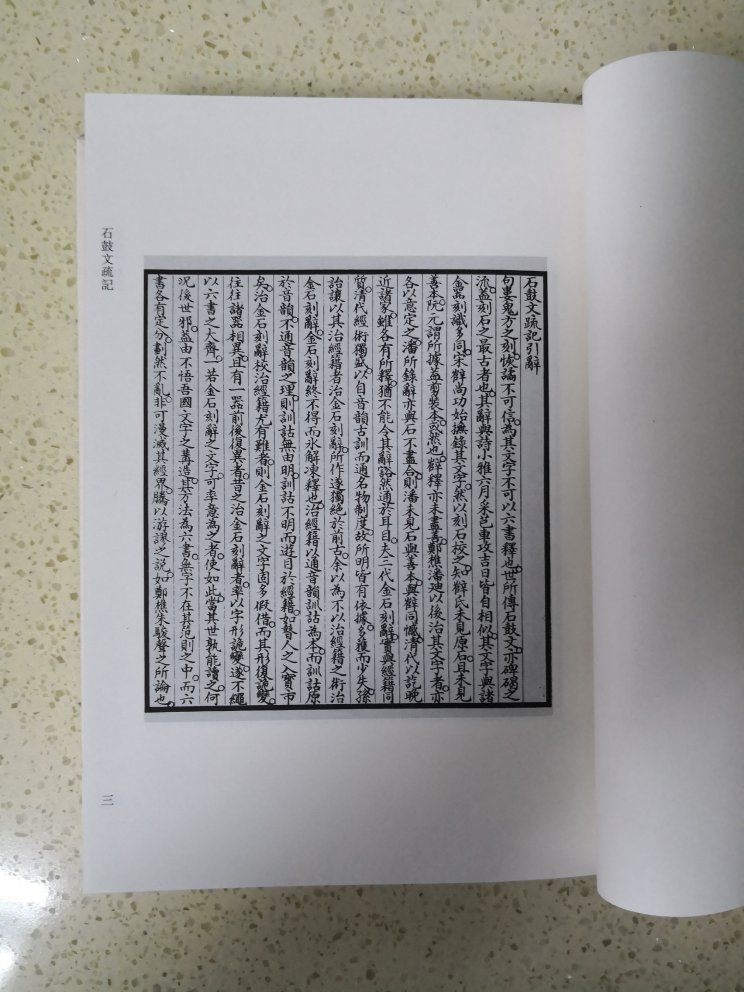 石鼓文疏記引辭
句婁鬼方之刻恢譎不可信為其文字不可以六書釋也。世所傳石鼓文。亦碑碣之
流。蓋刻石之最古者也。其辭與詩小雅六月采芑車攻吉日皆自相似。其文字與諸
金器刻識多同。宋薛尚功始撫錄其文字。然以刻石校之。知薛氏未見原石。且未見
善本。阮元謂所據蓋剪裝本。或然也。薛釋亦未盡善。鄭樵潘迪以後治其文字者。亦
各以意定之。潘所錄辭亦與石不盡合。則潘未見石與善本與薛同憾。清代以訖晚
近諸家。雖各有所釋。猶不能令其辭豁然通於耳目。夫三代金石刻辭。實與經籍同
質。清代經術獨盛。以自音韻古訓而通名物制度。故所明皆有依據。多獲而少失。孫
詒讓以其治經籍者治金石刻辭。所作遂獨絕於前古。余以為不以治經籍之術治
金石刻辭。金石刻辭終不得而冰解凍釋也。治經籍以通音韻訓詁為本。而訓詁原
於音韻。不通音韻之理。則訓詁無由明。訓詁不明而遊目於經籍。如瞽人之入寶市
矣。治金石刻辭校治經籍尤有難者。則金石刻辭之文字固多假借。而其形復詭變。
往往諸器相異。且有一器前後復異者。昔之治金石刻辭者。率以字形詭變。遂不繩
以六書之大齊。一若金石刻辭之文字。可率意為之者。使如此。當其世孰能讀之。何
況後世邪。蓋由不悟吾國文字之冓造。其方法為六書。無字不在其范則之中。而六
書各有定分。劃然不亂。非可漫滅其經界。騰以游讓之說。如鄭樵朱駿聲之所論也。
石鼓文疏記
三